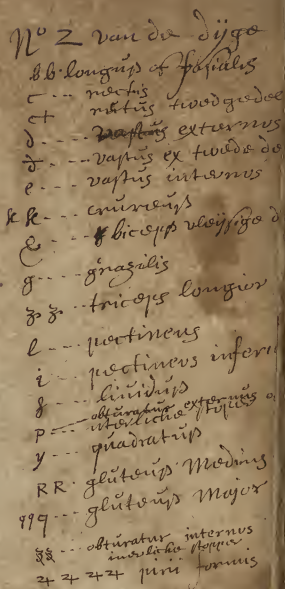 No 2 van de dije
bb. longuß of fasialis
c --- rectus
c+ --- rectus tweedgedee
d ---- vastus externos
d. ---- vastus ex twede de
e ---- vastus internos
k k --- crureuß
& --- biceps vleijsige d
g --- grasilis
ꝫ ꝫ --- triceps longior
l --- pectineus
i --- pectineus inferi
8 --- liuiduß
p --- obturatus externus
uterlicke stopper o
y --- quadratuß
RR. gluteuß Medius
qqq --- gluteuß Major
ꝫꝫ --- obturatur internos
inerlicke stopper
4 4 4 4 pirii formis